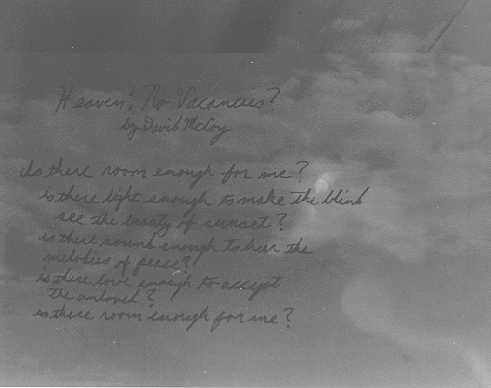 Heaven: No Vacancies?
by David McCoy
Is there room enough for me?
is there light enough to make the blind
see the beauty of sunset?
is there sound enough to hear the
melodies of peace?
is there love enough to accept
the unloved?
is there room enough for me?